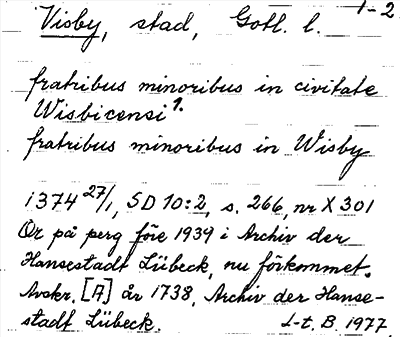 1-2
Visby, stad, Gotl. l.
fratribus minoribus in civitate
Wisbicensi 1.
fratribus minoribus in Wisby
1374 27/1, SD 10:2, s. 266, nr X 301
Or på perg före 1939 i Archiv der
Hansestadt Lübeck, nu förkommet.
Avskr. [A] år 1738, Archiv der Hanse-
stadt Lübeck. L-t. B. 1977